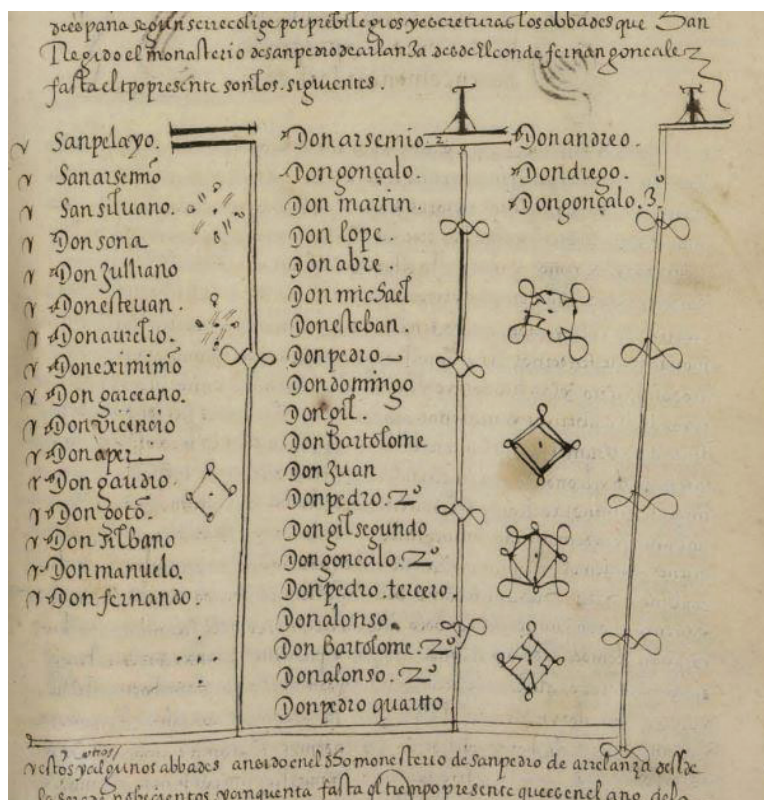 de españa según se recolige por prebilegios y escreturas los abbades que San
Regido el monasterio de san pedro de arlanza desde el conde fernan goncalez
fasta el tpo presente son los siguientes.
San pelayo.
San arsemio
San siluano.
Don sona
Don Zulliano
Don esteuan.
Don aurelio.
Don eximimo
Don garceano.
Don vicencio
Don aper
Don gaudio.
Don doto.
Don Albano
Don manuelo.
Don fernando.
Don arsemio 2º
Don gonçalo.
Don martin.
Don lope.
Don abre.
Don michael
Don esteban.
Don pedro
Don domingo
Don gil.
Don Bartolome
Don Juan
Don pedro. 2º
Don gil segundo
Don goncalo. 2º
Don pedro. tercero.
Don alonso.
Don Bartolome. 2º
Don alonso. 2º
Don pedro quartto
Don andreo.
Don diego.
Don gonçalo. 3º
otros
y estos y algunos abbades an sido en el dho monesterio de san pedro de arrelanza desde
la era de nobecientos y cinquenta fasta el tiempo presente que es en el ano de